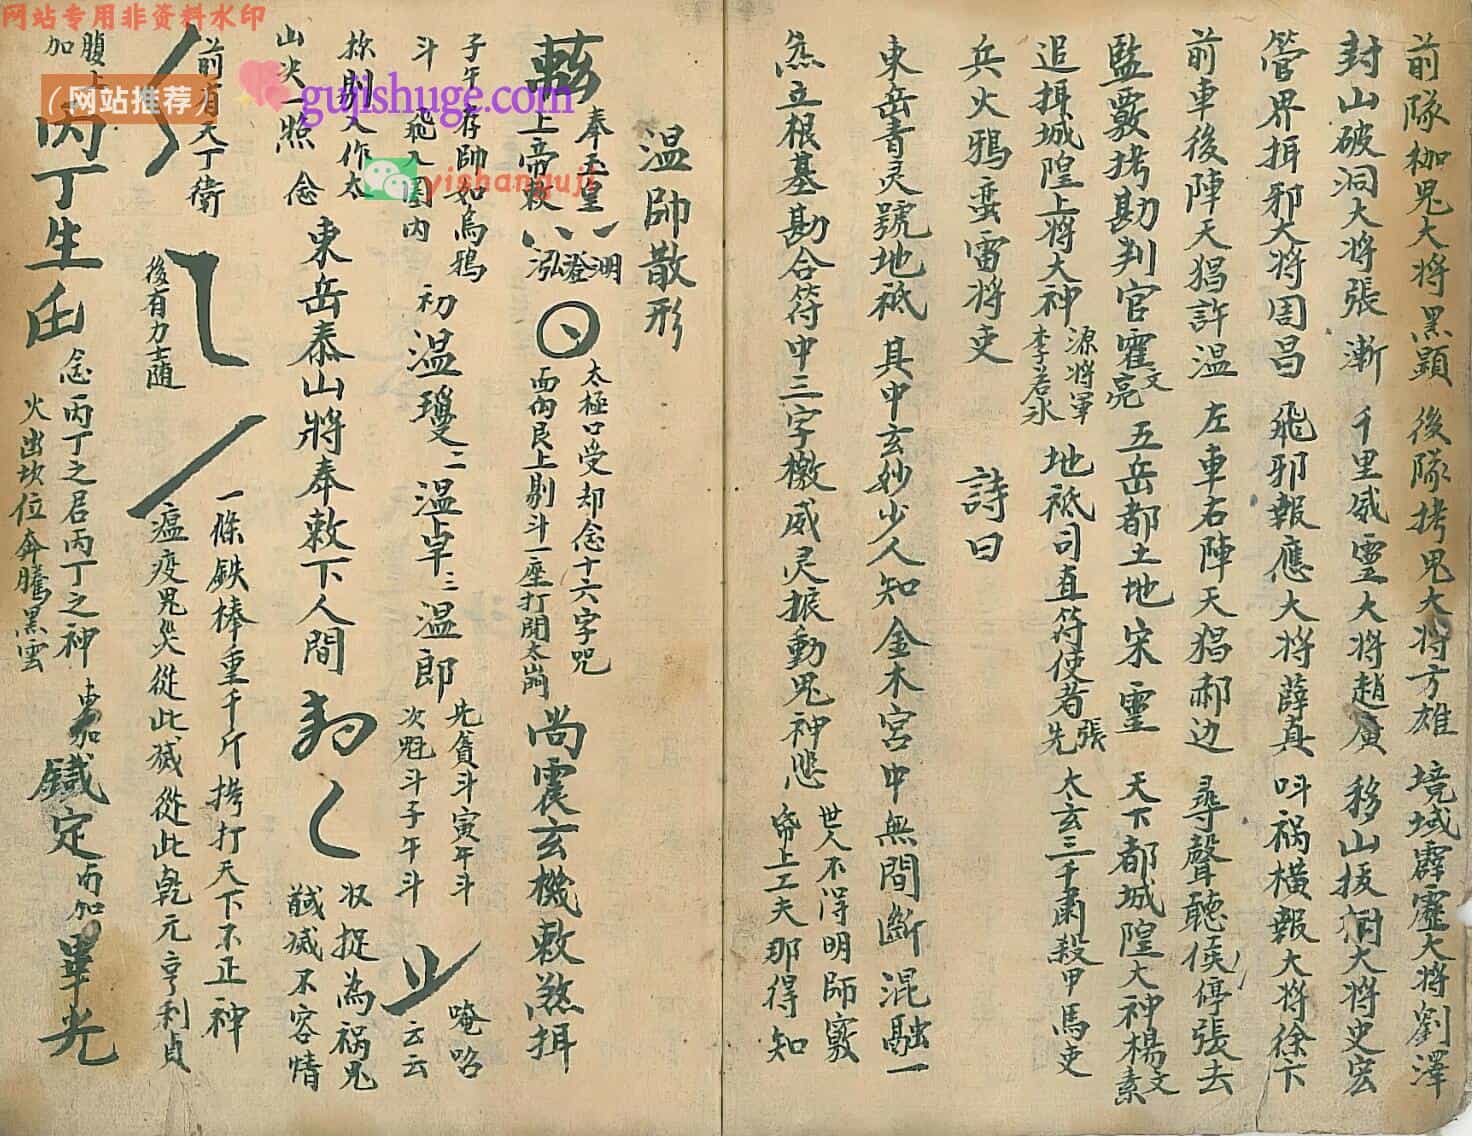 网站专用非资料水印
（网站推荐）
gujishuge.com
yishanguji
前隊枷鬼大將黑顕 後隊拷鬼大将方雄 境域霹靂大将劉澤
封山破洞大将張漸 千里威靈大将趙廣 移山拔樹大将史宏
管界揖邪大将周昌 飛邪報應大将薛真 叫禍橫報大将徐卞
前車後陣天猖許温 左車右陣天猖郝边 尋聲聽侯停張去
監覈拷勘判官霍文亮 五岳都土地宋靈 天下都城隍大神楊文素
追揖城隍上将大神 源将軍 李若水 地祇司直符使者張先 太玄三千肅殺甲馬吏
兵火鴉蛮雷将吏 詩曰
東岳青灵號地祇 其中玄妙少人知 金木宮中無間斷 混融一
炁立根基 勘合符中三字檄 威灵振動鬼神悲 世人不得明師竅
帝上工夫那得知
温帥散形
奉玉皇上帝敕 泓澄渊 太極口受却念十六字咒
面向艮上剔斗一座打開太嵩 尚震玄機敕煞揖
子午 存帥如烏鴉
斗 飛入圈内 初温瓊二温卓三温郎 先貪斗寅午斗
次魁斗子午斗 唵呇云云
捺剔入作太
山尖一照 念 東岳泰山將奉敕下人間 収捉為禍鬼
馘滅不容情
前有天丁衛 後有力士随 一條鉄棒重千斤拷打天下不正神
瘟疫鬼災從此滅從此乾元亨利貞
腹上加 丙丁生 念丙丁之君丙丁之神
火出坎位奔騰黑雲 鐡定 而加 畢光